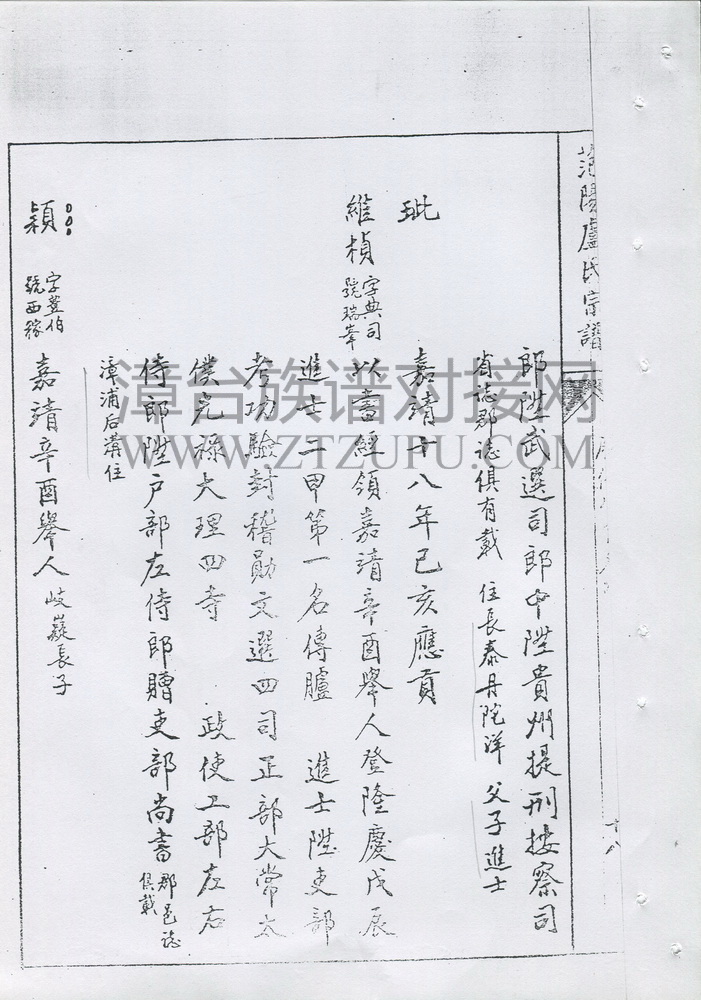 范陽盧氏宗譜
十八
郎陞武選司郎中陞貴州提刑按察司
省誌郡誌俱有載 住長泰丹陀洋 父子進士
玭
嘉靖十八年己亥應貢
維楨 字典司 號瑞峯 以書經領嘉靖辛酉舉人登隆慶戊辰
進士二甲第一名傳臚 進士陞吏部
考功驗封稽勛文選四司正部大常太
僕光祿大理四寺 政使工部左右
侍郎陞户部左侍郎贈吏部尚書 郡邑誌俱載
漳浦后溝住
穎 字莖伯 號西稼 嘉靖辛酉舉人 岐嶷長子
漳台族谱对接网
WWW.ZTZUPU.COM